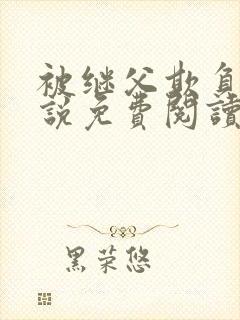 被继父欺负
説免費閱讀
黑荣悠